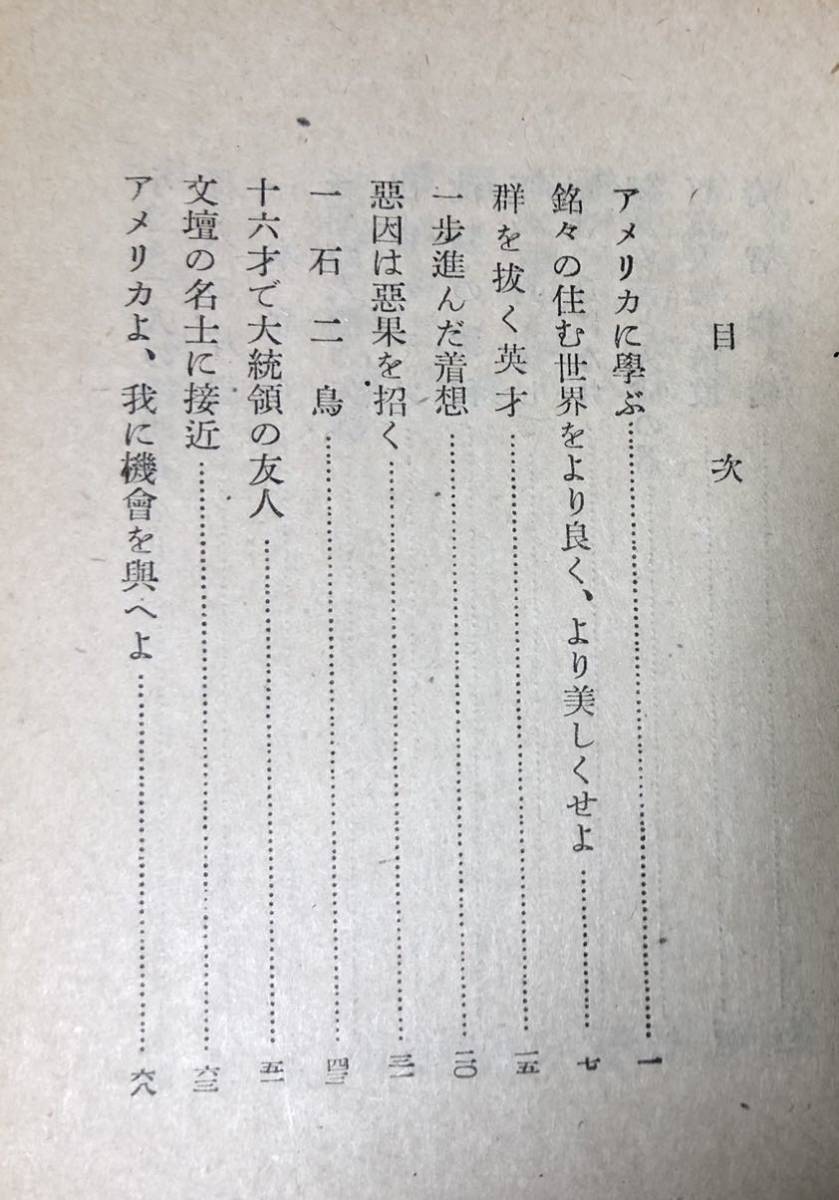 目次
アメリカに學ぶ……一
銘々の住む世界をより良く、より美しくせよ……七
群を拔く英才……一五
一步進んだ着想……二〇
惡因は惡果を招く……三一
一石二鳥……四三
十六才で大統領の友人……五一
文壇の名士に接近……六三
アメリカよ、我に機會を與へよ……六八